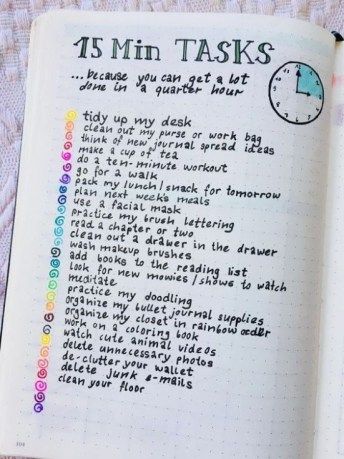 15 Min TASKS
...because you can get a lot
done in a quarter hour
tidy up my desk
clean out my purse or work bag
think of new journal spread ideas
make a cup of tea
do a ten-minute workout
go for a walk
pack my lunch/snack for tomorrow
plan next week's meals
use a facial mask
practice my brush lettering
read a chapter or two
clean out a drawer in the drawer
wash makeup brushes
add books to the reading list
look for new mowies/shows to watch
meditate
practice my doodling
organize my bullet journal supplies
organize my closet in rainbow order
work on a coloring book
watch cute animal videos
delete unnecessary photos
de-clutter your wallet
delete junk e-mails
clean your floor